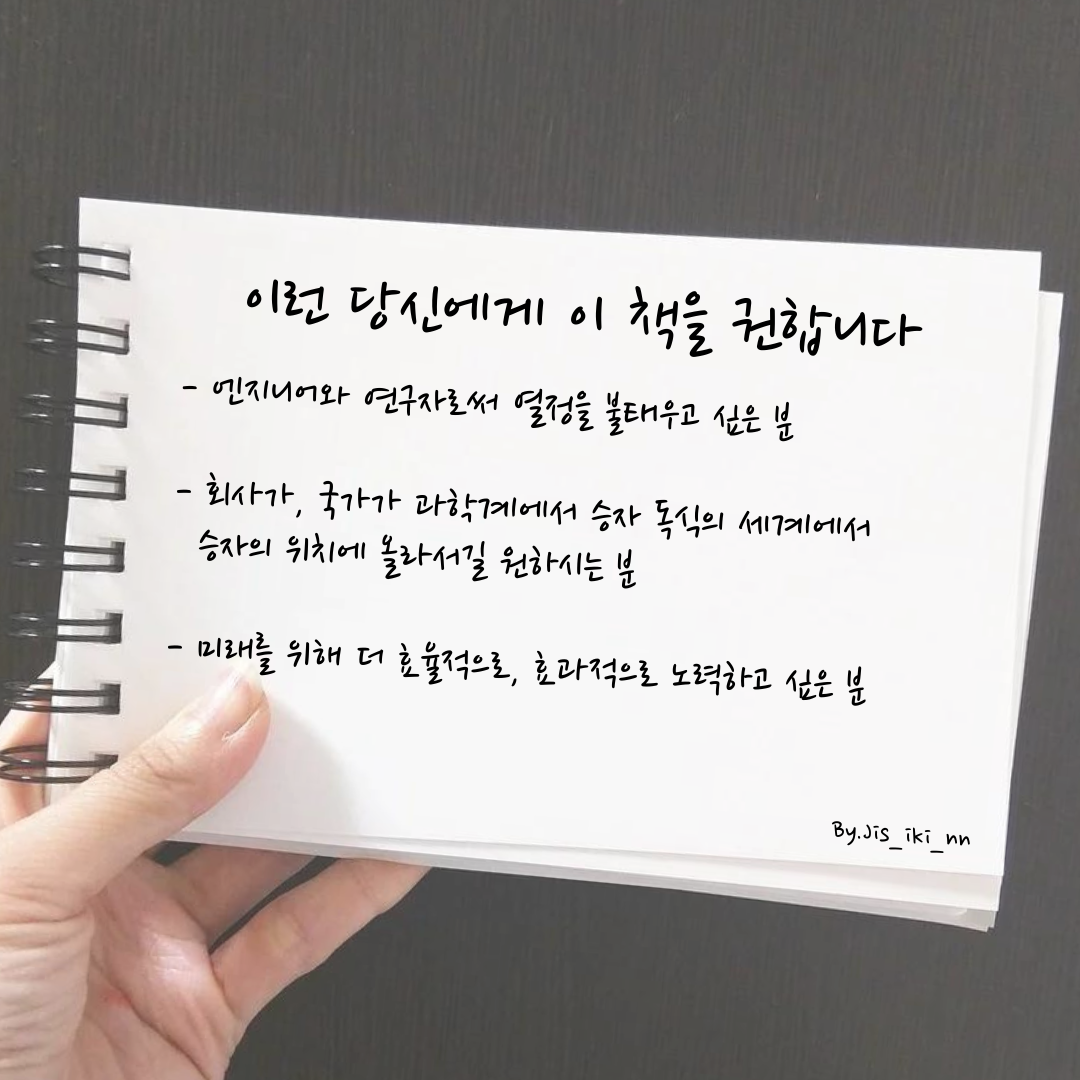 이런 당신에게 이 책을 권합니다
- 엔지니어와 연구자로써 열정을 불태우고 싶은 분
- 회사가, 국가가 과학계에서 승자 독식의 세계에서
승자의 위치에 올라서길 원하시는 분
- 미래를 위해 더 효율적으로, 효과적으로 노력하고 싶은 분
By.Jis_iki_nn